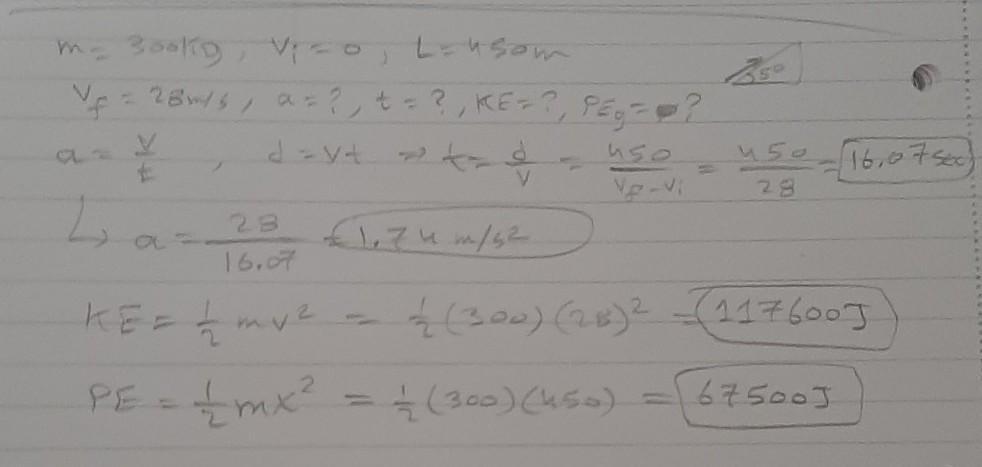 m = 300kg, Vi = 0, L = 450m
Vf = 28m/s, a = ?, t = ?, KE = ?, PEg = ?
a = V/t, d = Vt ⇒ t = d/V = 450/(Vf - Vi) = 450/28 = 16.07 sec
↳ a = 28/16.07 = 1.74 m/s²
KE = 1/2 mv² = 1/2 (300)(28)² = 117600J
PE = 1/2 mx² = 1/2 (300)(450) = 67500J